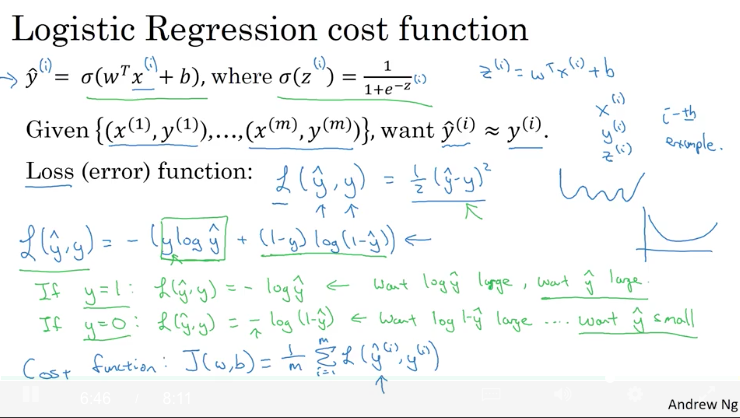 Logistic Regression cost function
→ ŷ⁽ⁱ⁾ = σ(wᵀx⁽ⁱ⁾ + b), where σ(z⁽ⁱ⁾) = 1/(1+e^-z⁽ⁱ⁾) z⁽ⁱ⁾ = wᵀx⁽ⁱ⁾ + b
Given {(x⁽¹⁾, y⁽¹⁾),…,(x⁽ᵐ⁾, y⁽ᵐ⁾)}, want ŷ⁽ⁱ⁾ ≈ y⁽ⁱ⁾.
x⁽ⁱ⁾
y⁽ⁱ⁾
z⁽ⁱ⁾
i-th
example.
Loss (error) function: ℒ(ŷ, y) = ½(ŷ-y)²
ℒ(ŷ, y) = - (y log ŷ + (1-y) log(1-ŷ)) ←
If y=1: ℒ(ŷ, y) = - log ŷ ← Want log ŷ large, want ŷ large.
If y=0: ℒ(ŷ, y) = - log (1-ŷ) ← Want log 1-ŷ large .... want ŷ small
Cost function: J(w,b) = 1/m Σᵢ₌₁ᵐ ℒ(ŷ⁽ⁱ⁾, y⁽ⁱ⁾)
6:46 / 8:11
Andrew Ng